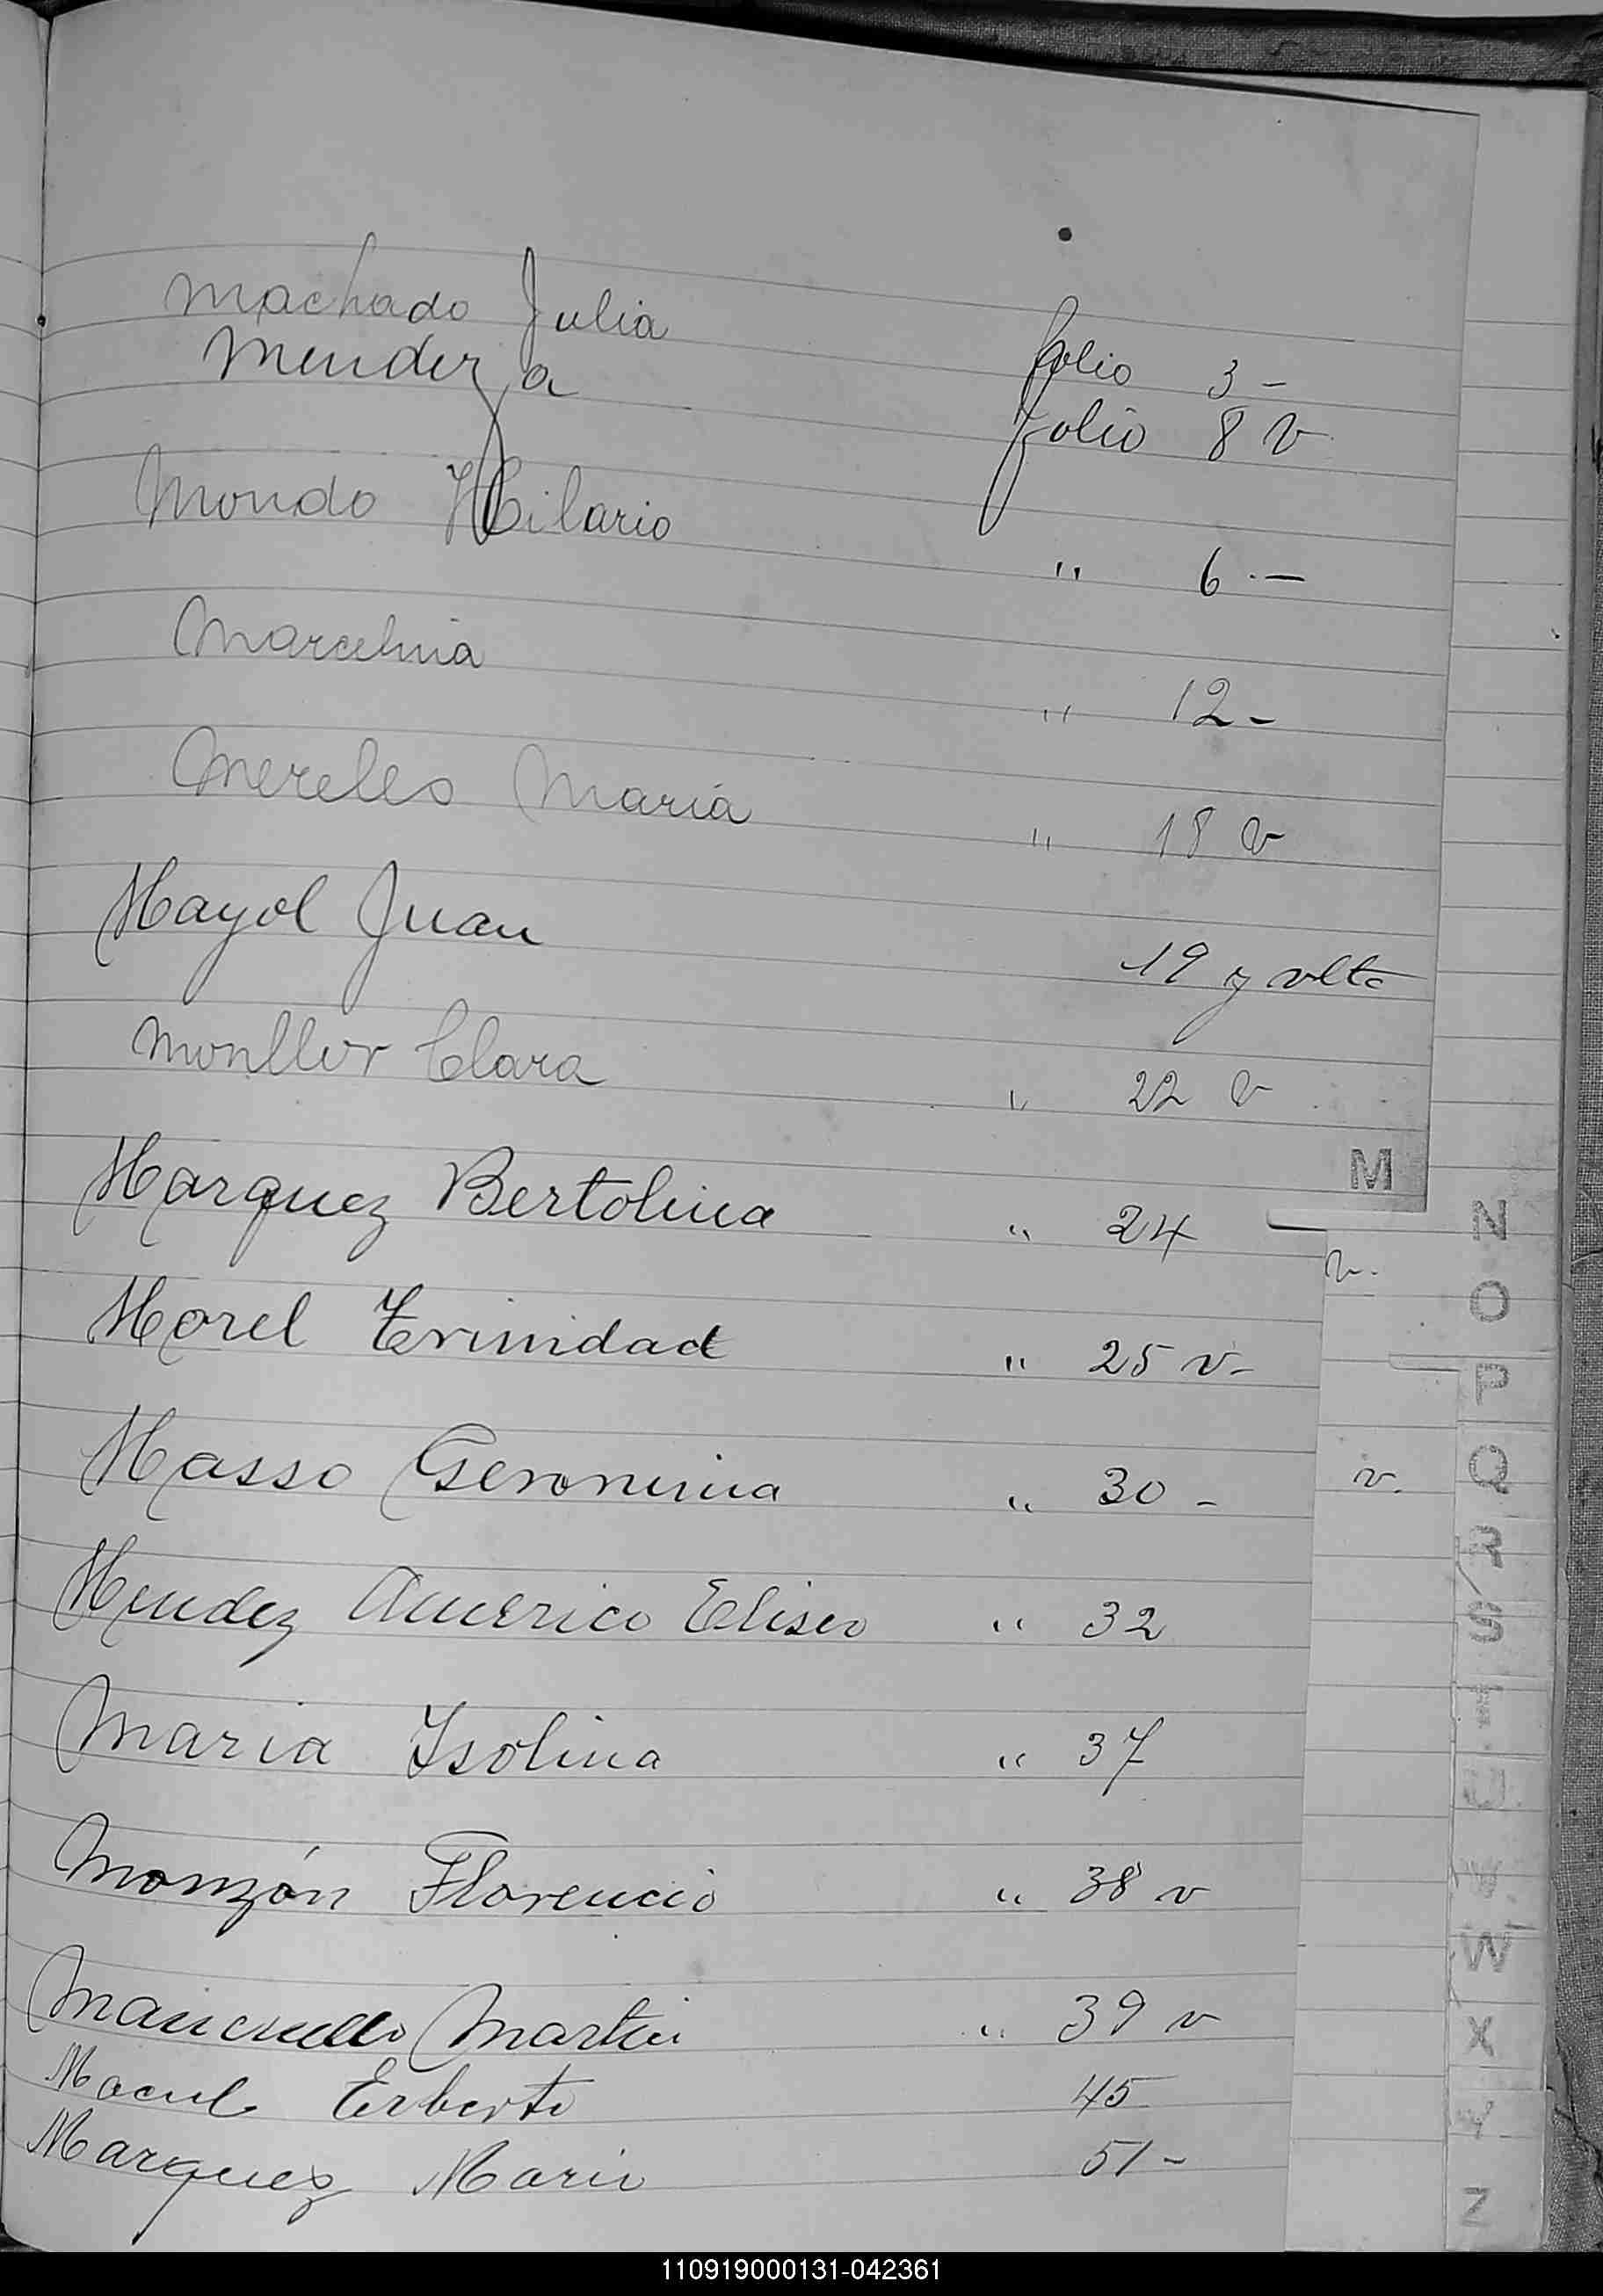 Machado Julia folio 3 -
Mendez a folio 8 v
Mondo Hilario " 6 . -
Marcelina " 12 -
Mereles Maria " 18 v
Mayol Juan 19 y vlta
Monllor Clara " 22 v
M
Marquez Bertolina " 24
v.
Morel Trinidad " 25 v -
Masso Geronima " 30 -
v.
Mendez Americo Eliseo " 32
Maria Isolina " 37
Monzón Florencio " 38 v
Martin " 39 v
Erberto 45
Marquez Mario 51 -
N
O
P
Q
R
S
T
U
V
W
X
Y
Z
110919000131-042361